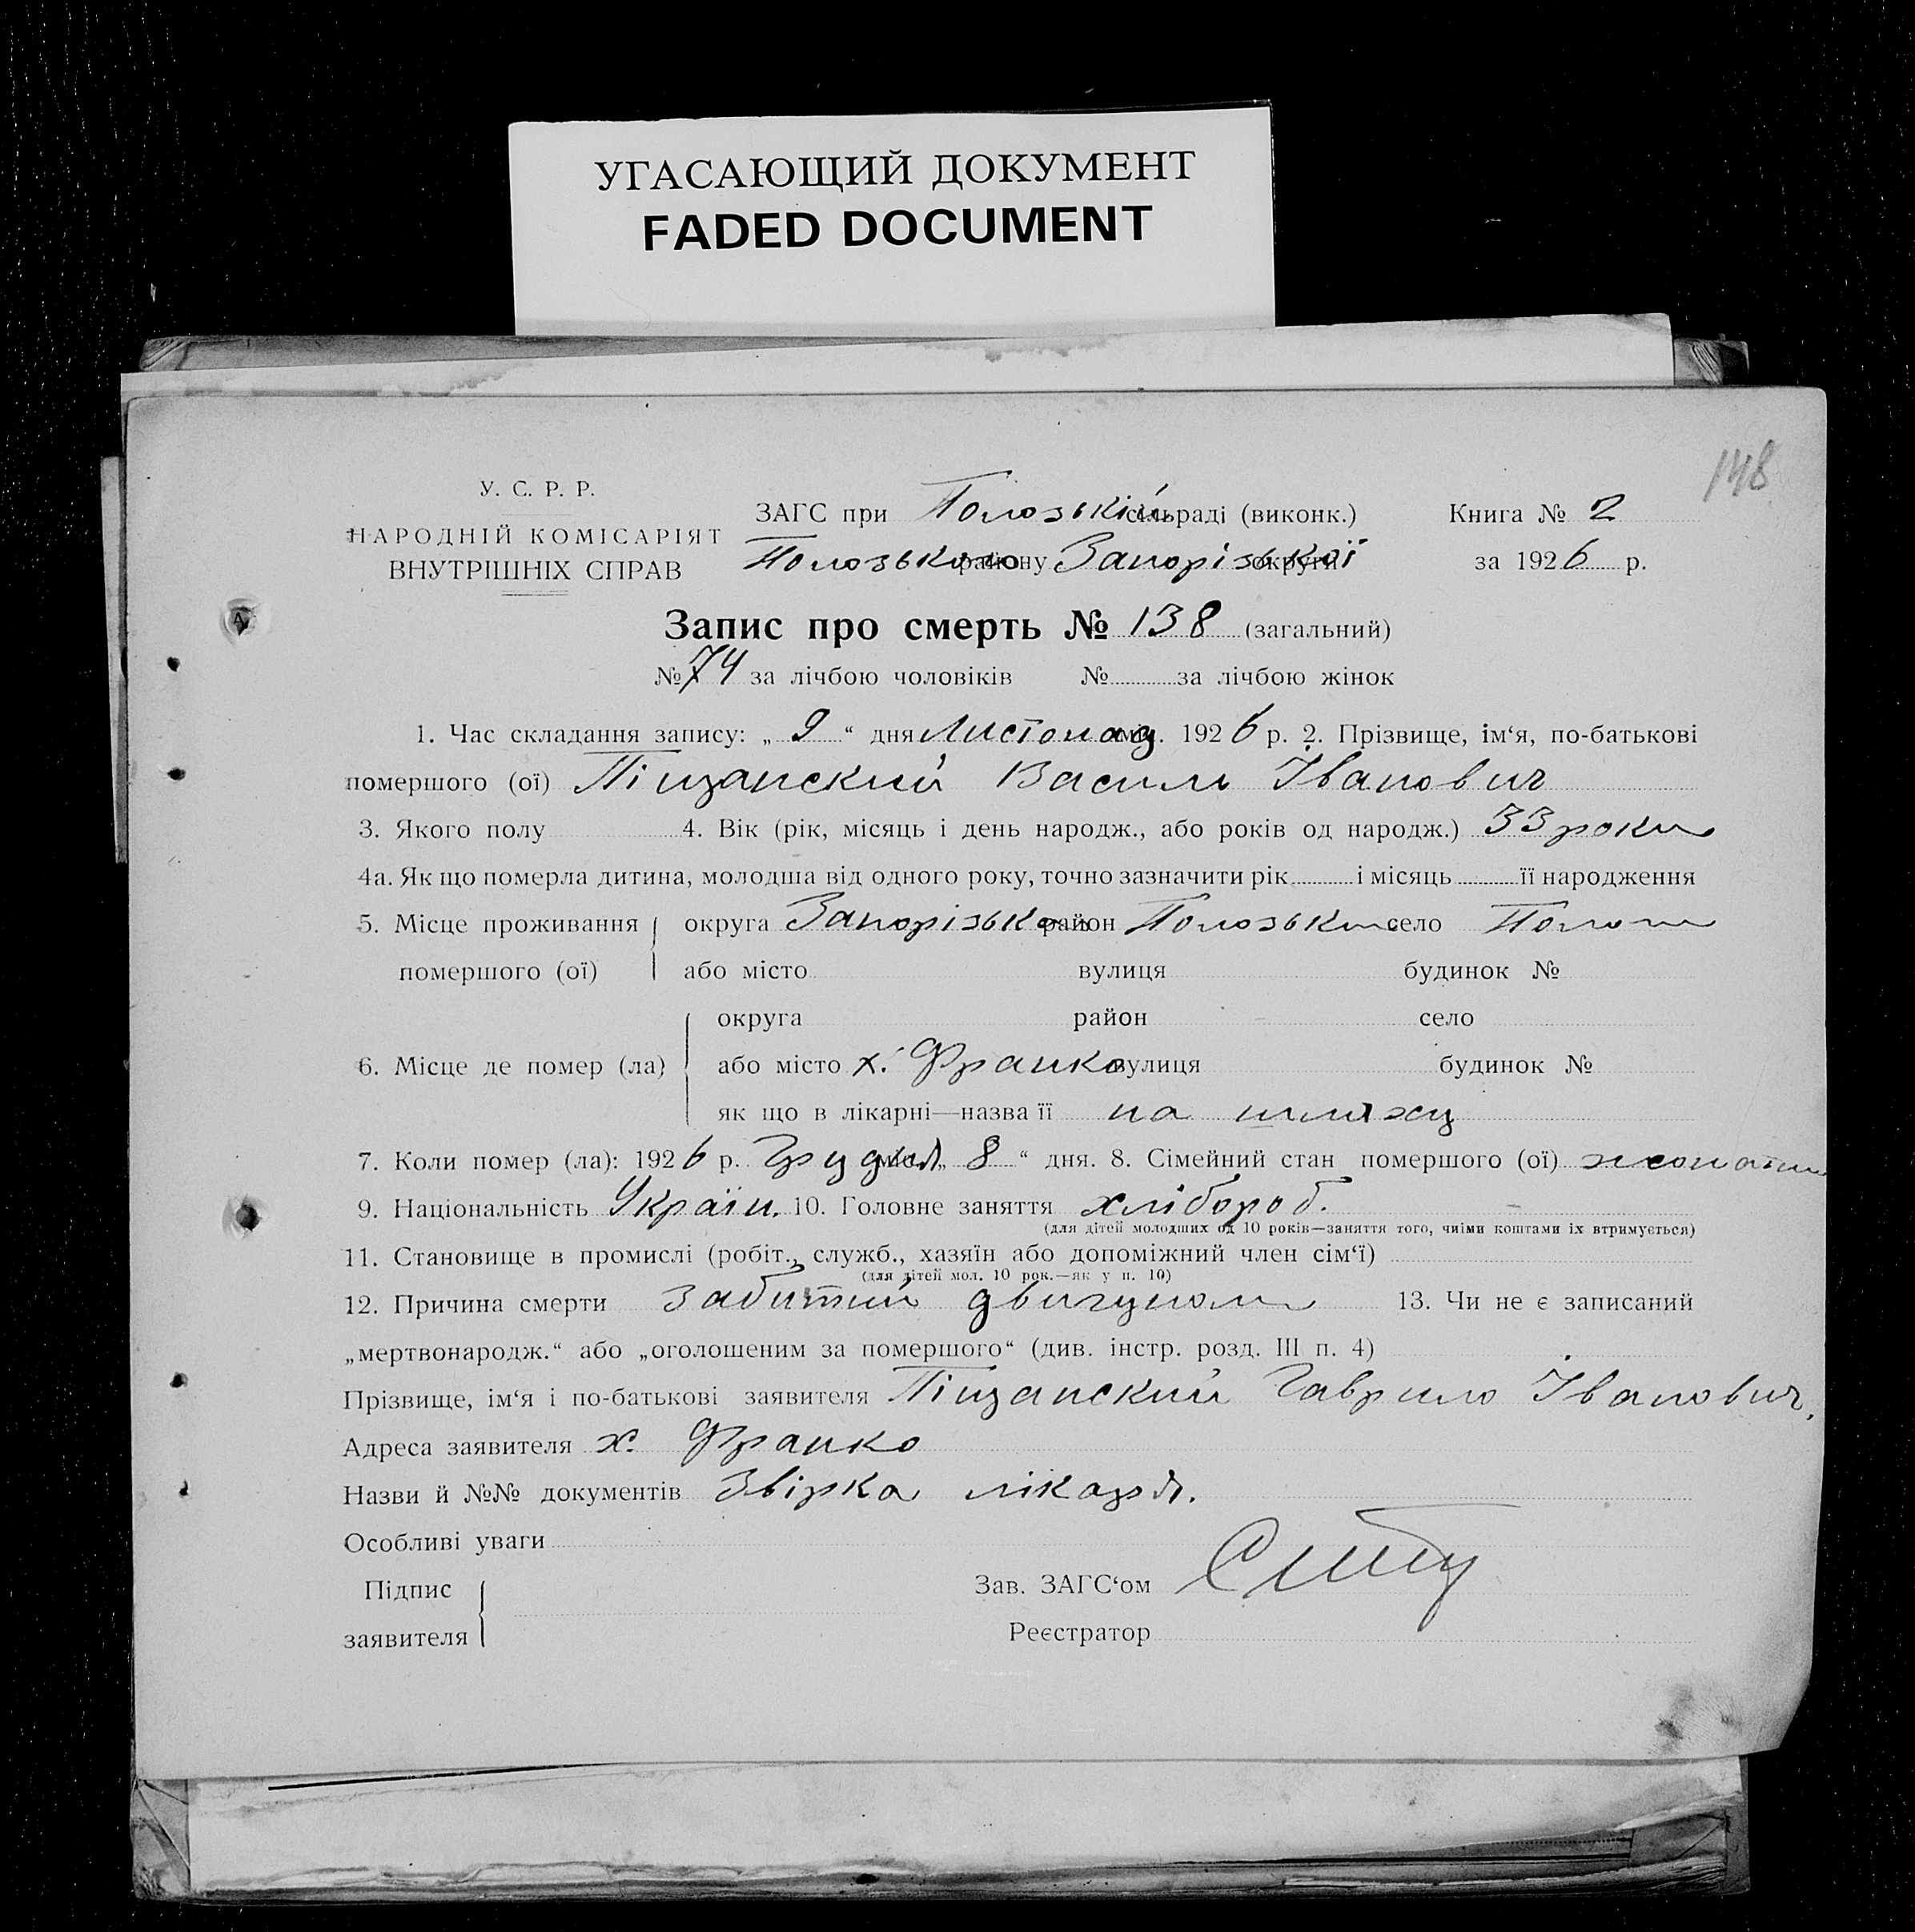 УГАСАЮЩИЙ ДОКУМЕНТ
FADED DOCUMENT
148
У. С. Р. Р.
НАРОДНІЙ КОМІСАРІЯТ
ВНУТРІШНІХ СПРАВ
ЗАГС при Положській сільраді (виконк.)
Пологського району Запорізької округи
Книга № 2
за 1926 р.
Запис про смерть № 138 (загальний)
№ 74 за лічбою чоловіків № за лічбою жінок
1. Час складання запису: „ 9 “ дня Листопад міс. 1926 р. 2. Прізвище, ім‘я, по-батькові
помершого (ої) Піщанский Василь Іванович
3. Якого полу 4. Вік (рік, місяць і день народж., або років од народж.) 33 роки
4а. Як що померла дитина, молодша від одного року, точно зазначити рік і місяць її народження
5. Місце проживання округа Запорізька район Положськи село Пологи
помершого (ої) або місто вулиця будинок №
округа район село
6. Місце де помер (ла) або місто х. Франко вулиця будинок №
як що в лікарні—назва її на шляху
7. Коли помер (ла): 1926 р. Грудня міс. „ 8 “ дня. 8. Сімейний стан помершого (ої) жонатий
9. Національність Україн. 10. Головне заняття хлібороб.
(для дітей молодших од 10 років—заняття того, чиїми коштами їх втримується)
11. Становище в промислі (робіт., служб., хазяїн або допоміжний член сім‘ї)
(для дітей мол. 10 рок.—як у п. 10)
12. Причина смерти забитий двигуном 13. Чи не є записаний
„мертвонародж.“ або „оголошеним за помершого“ (див. інстр. розд. III п. 4)
Прізвище, ім‘я і по-батькові заявителя Піщанский Гаврило Іванович.
Адреса заявителя х. Франко
Назви й №№ документів Звірка лікаря.
Особливі уваги
Підпис
заявителя
Зав. ЗАГС‘ом
Реєстратор